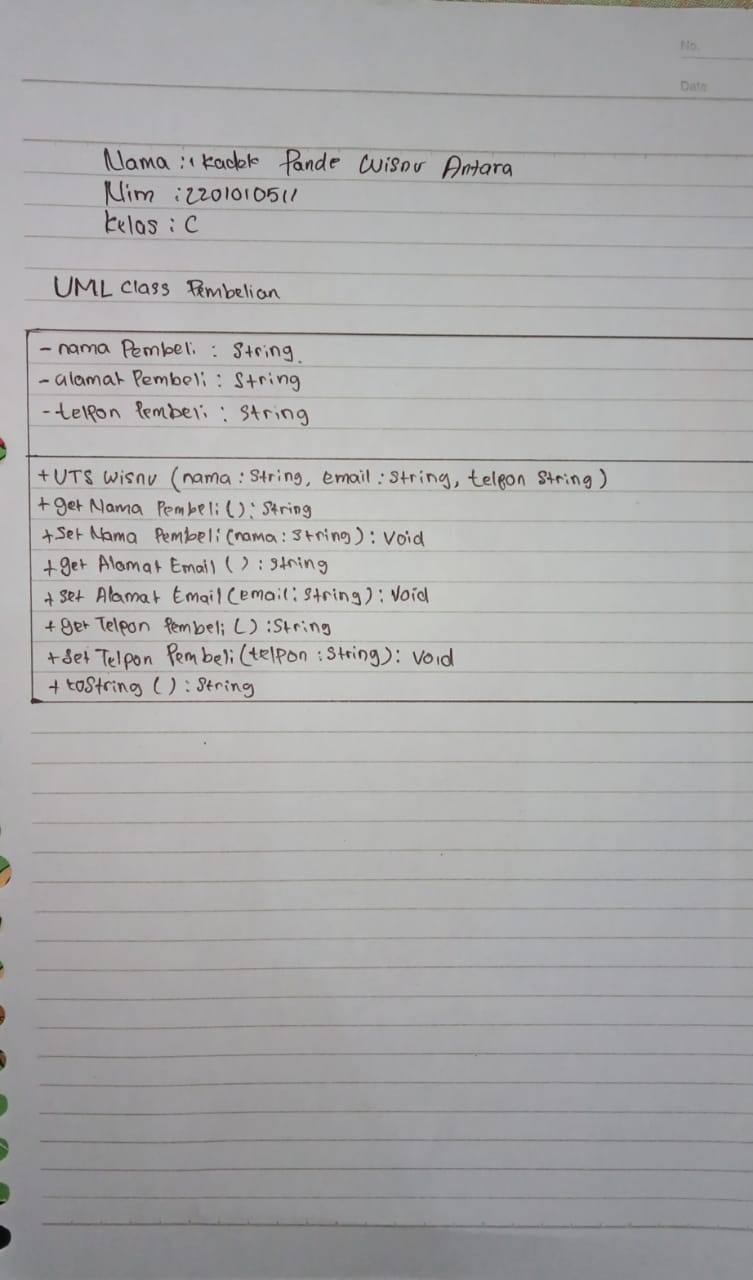 No.
Date
Nama : I Kadek Pande Wisnu Antara
Nim : 2201010511
Kelas : C
UML Class Pembelian
- nama Pembeli : String.
- alamat Pembeli : String
- telpon Pembeli : String
+ UTS Wisnu (nama : String, email : String, telpon String)
+ get Nama Pembeli () : String
+ Set Nama Pembeli (nama : String) : Void
+ get Alamat Email () : String
+ Set Alamat Email (email : String) : Void
+ get Telpon Pembeli () : String
+ Set Telpon Pembeli (telpon : String) : Void
+ toString () : String